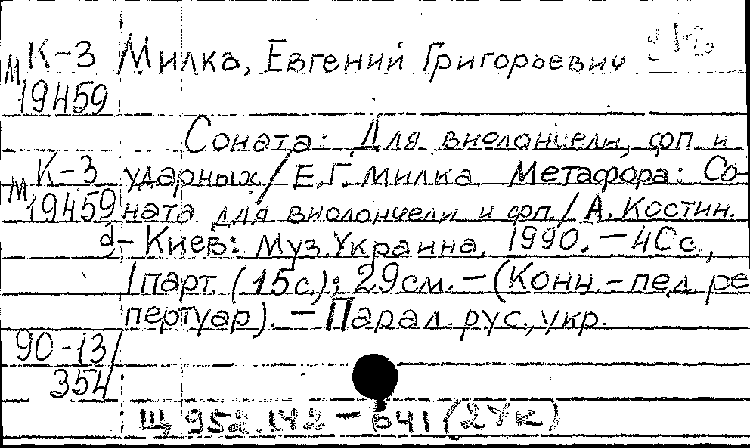 М К-3 Милка, Евгений Григорьевич
19459
Соната: Для виолончели, фп. и
М К-3 ударных / Е.Г. Милка. Метафора: Со-
19459 ната для виолончели и фп. / А. Костин.
д - Киев: Муз. Украина, 1990. - 40с.,
1 парт. (15с.); 29см. - (Конц.-пед. ре
пертуар). - Парал. рус., укр.
90-13/
354
Щ 952.142 - 641 (2Ук)